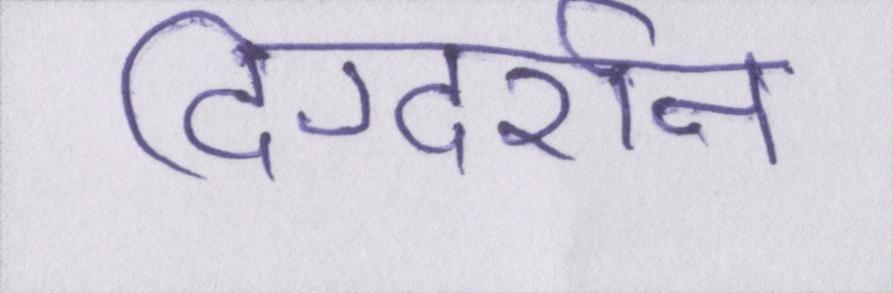 दिग्दर्शन